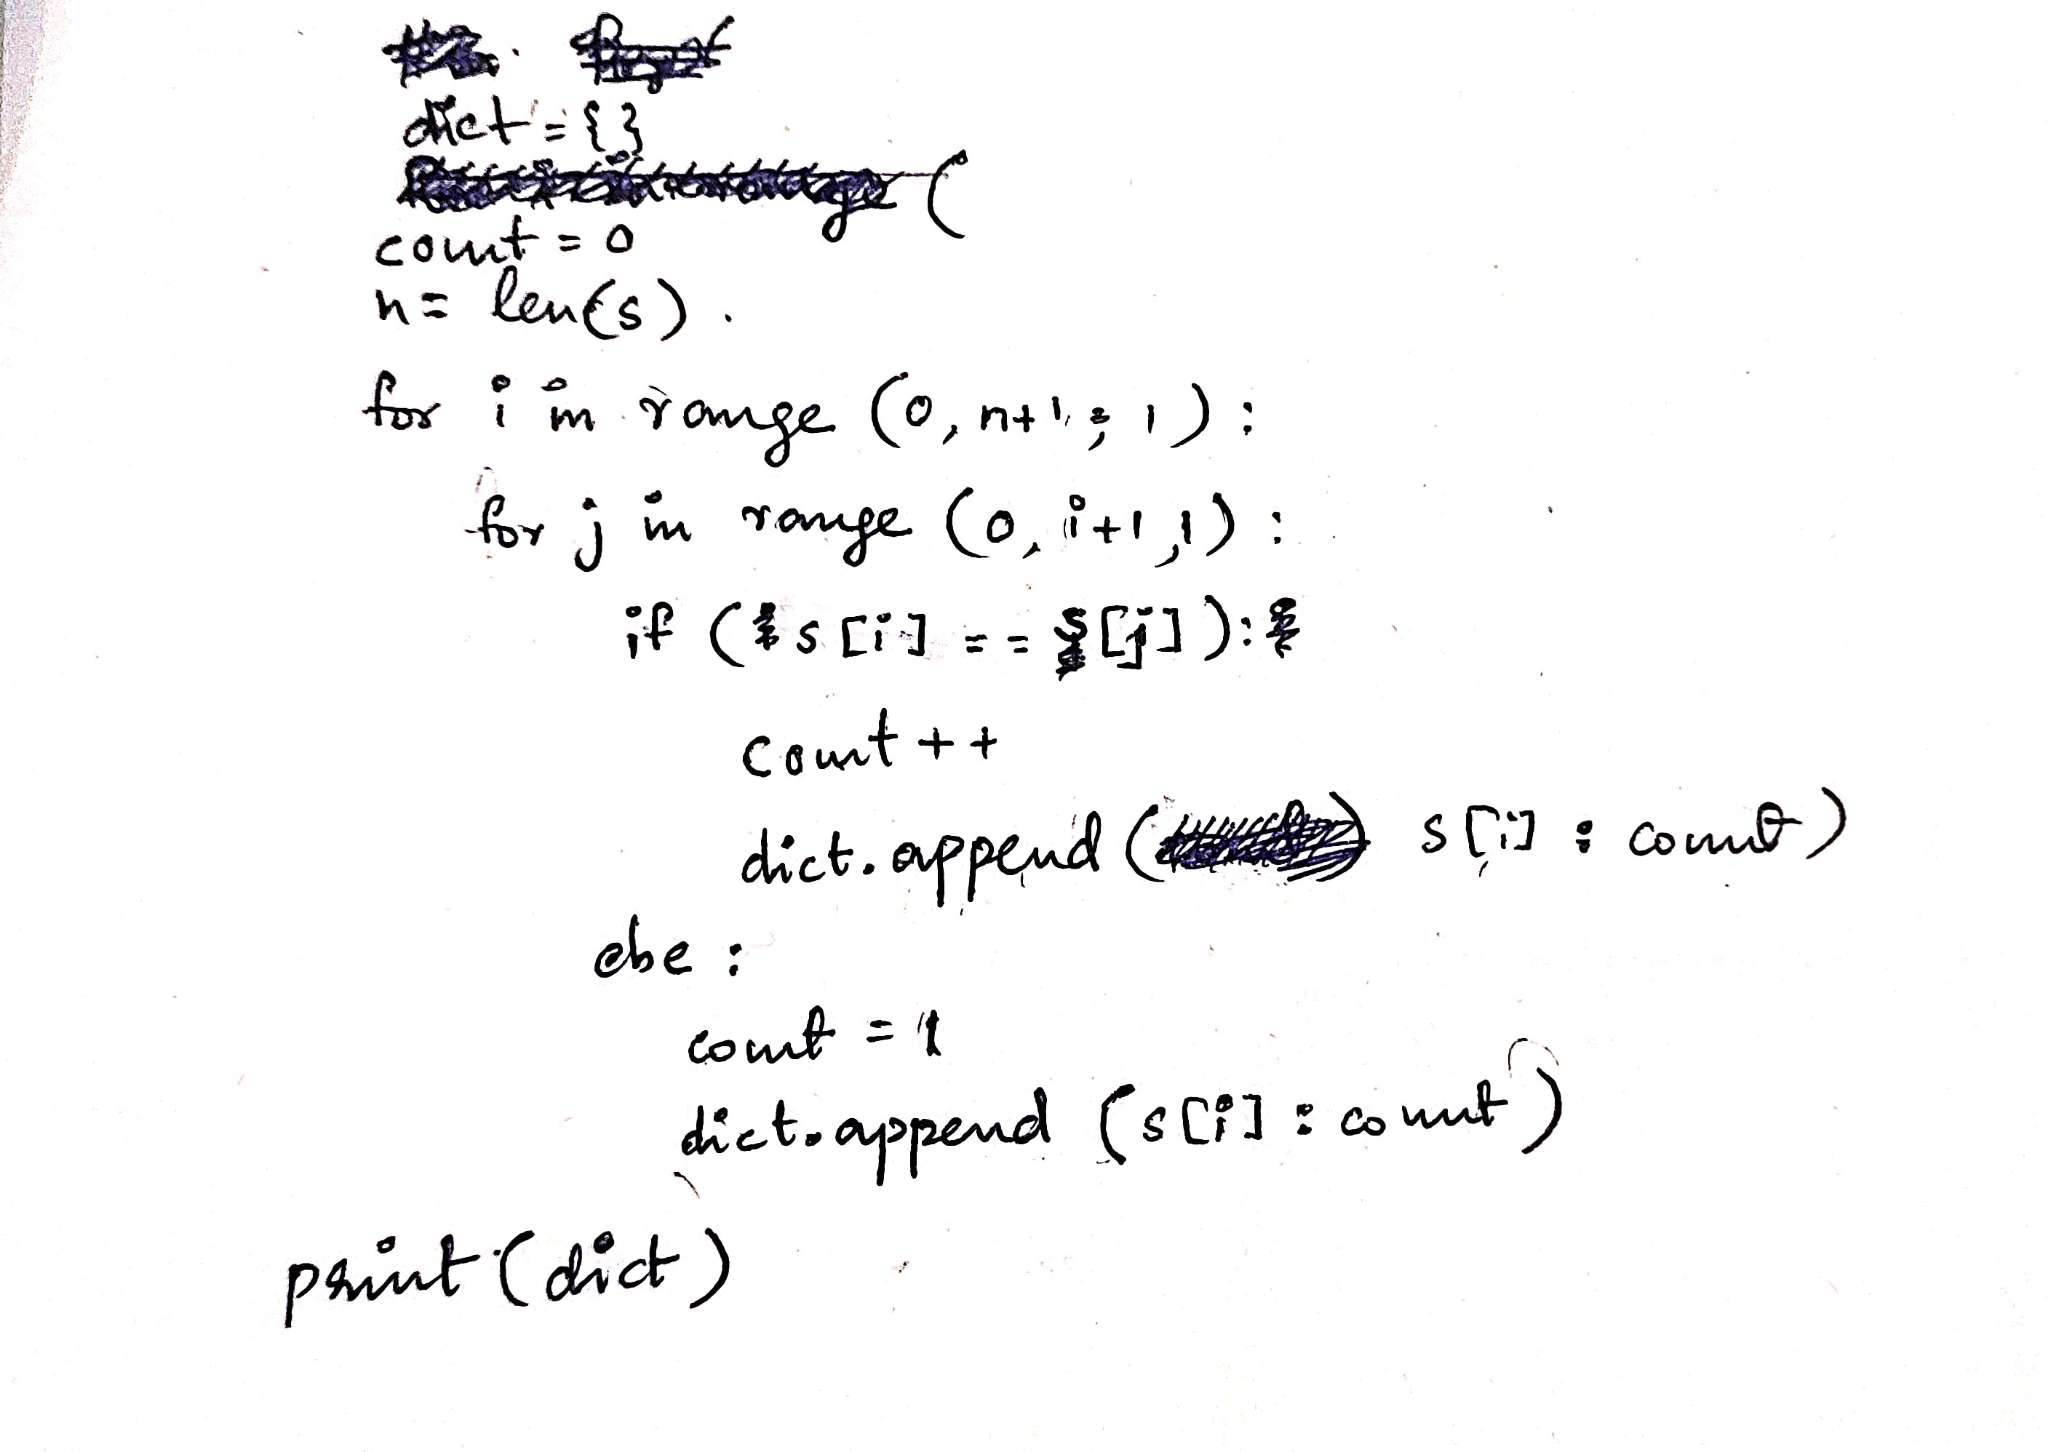 dict = {}
count = 0
n = len(s).
for i in range (0, n+1, 1):
for j in range (0, i+1, 1):
if (s[i] == s[j]):
count++
dict.append( s[i] : count)
else :
count = 1
dict.append (s[i] : count)
print (dict)